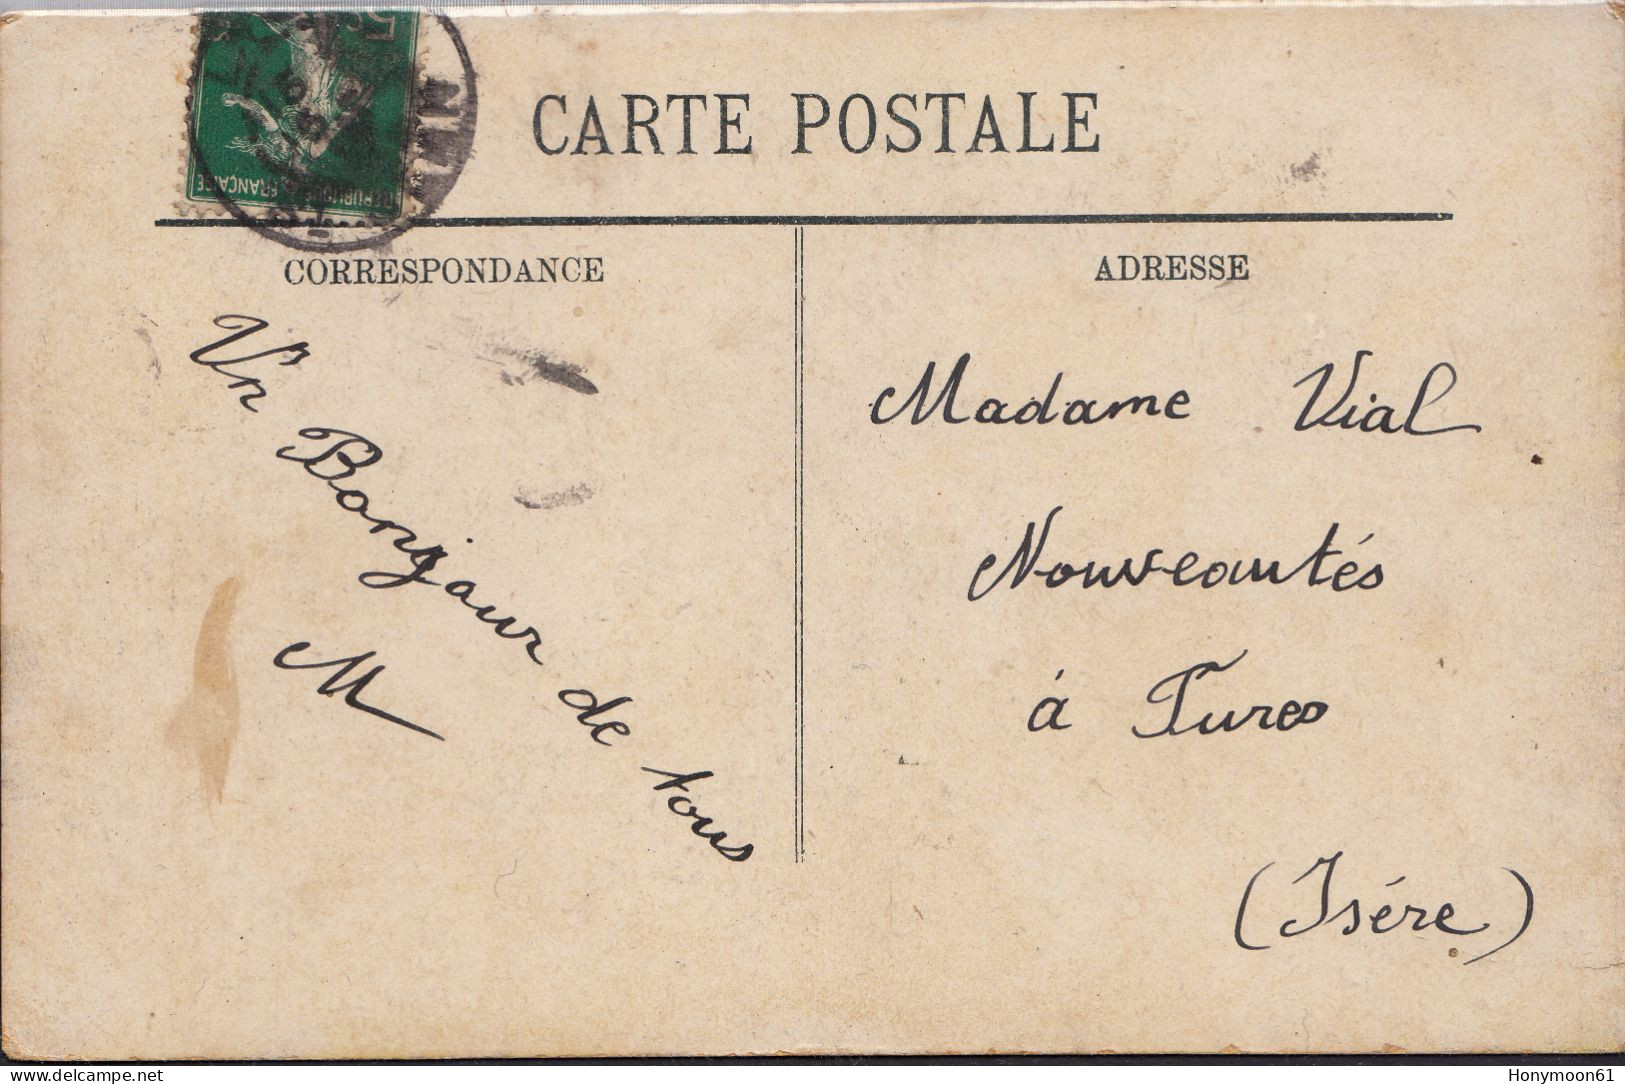 CARTE POSTALE
5c
REPUBLIQUE FRANÇAISE
CORRESPONDANCE
ADRESSE
Un Bonjour de tous
M
Madame Vial
Nouveautés
à Tures
(Isére)
delcampe.net
Honymoon61